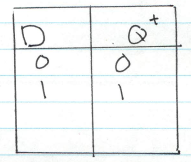 D Q+
0 0
1 1